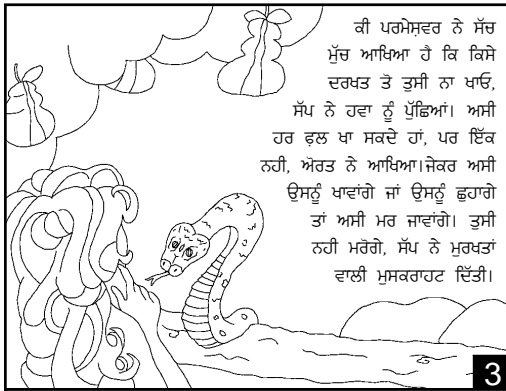 ਕੀ ਪਰਮੇਸ਼ਵਰ ਨੇ ਸੱਚ
ਮੁੱਚ ਆਖਿਆ ਹੈ ਕਿ ਕਿਸੇ
ਦਰਖਤ ਤੋ ਤੁਸੀ ਨਾ ਖਾਓ,
ਸੱਪ ਨੇ ਹਵਾ ਨੂੰ ਪੁੱਛਿਆਂ। ਅਸੀ
ਹਰ ਫ਼ਲ ਖਾ ਸਕਦੇ ਹਾਂ, ਪਰ ਇੱਕ
ਨਹੀ, ਔਰਤ ਨੇ ਆਖਿਆ।ਜੇਕਰ ਅਸੀ
ਉਸਨੂੰ ਖਾਵਾਂਗੇ ਜਾਂ ਉਸਨੂੰ ਛੁਹਾਗੇ
ਤਾਂ ਅਸੀ ਮਰ ਜਾਵਾਂਗੇ। ਤੁਸੀ
ਨਹੀ ਮਰੋਗੇ, ਸੱਪ ਨੇ ਮੁਰਖਤਾਂ
ਵਾਲੀ ਮੁਸਕਰਾਹਟ ਦਿੱਤੀ।
3